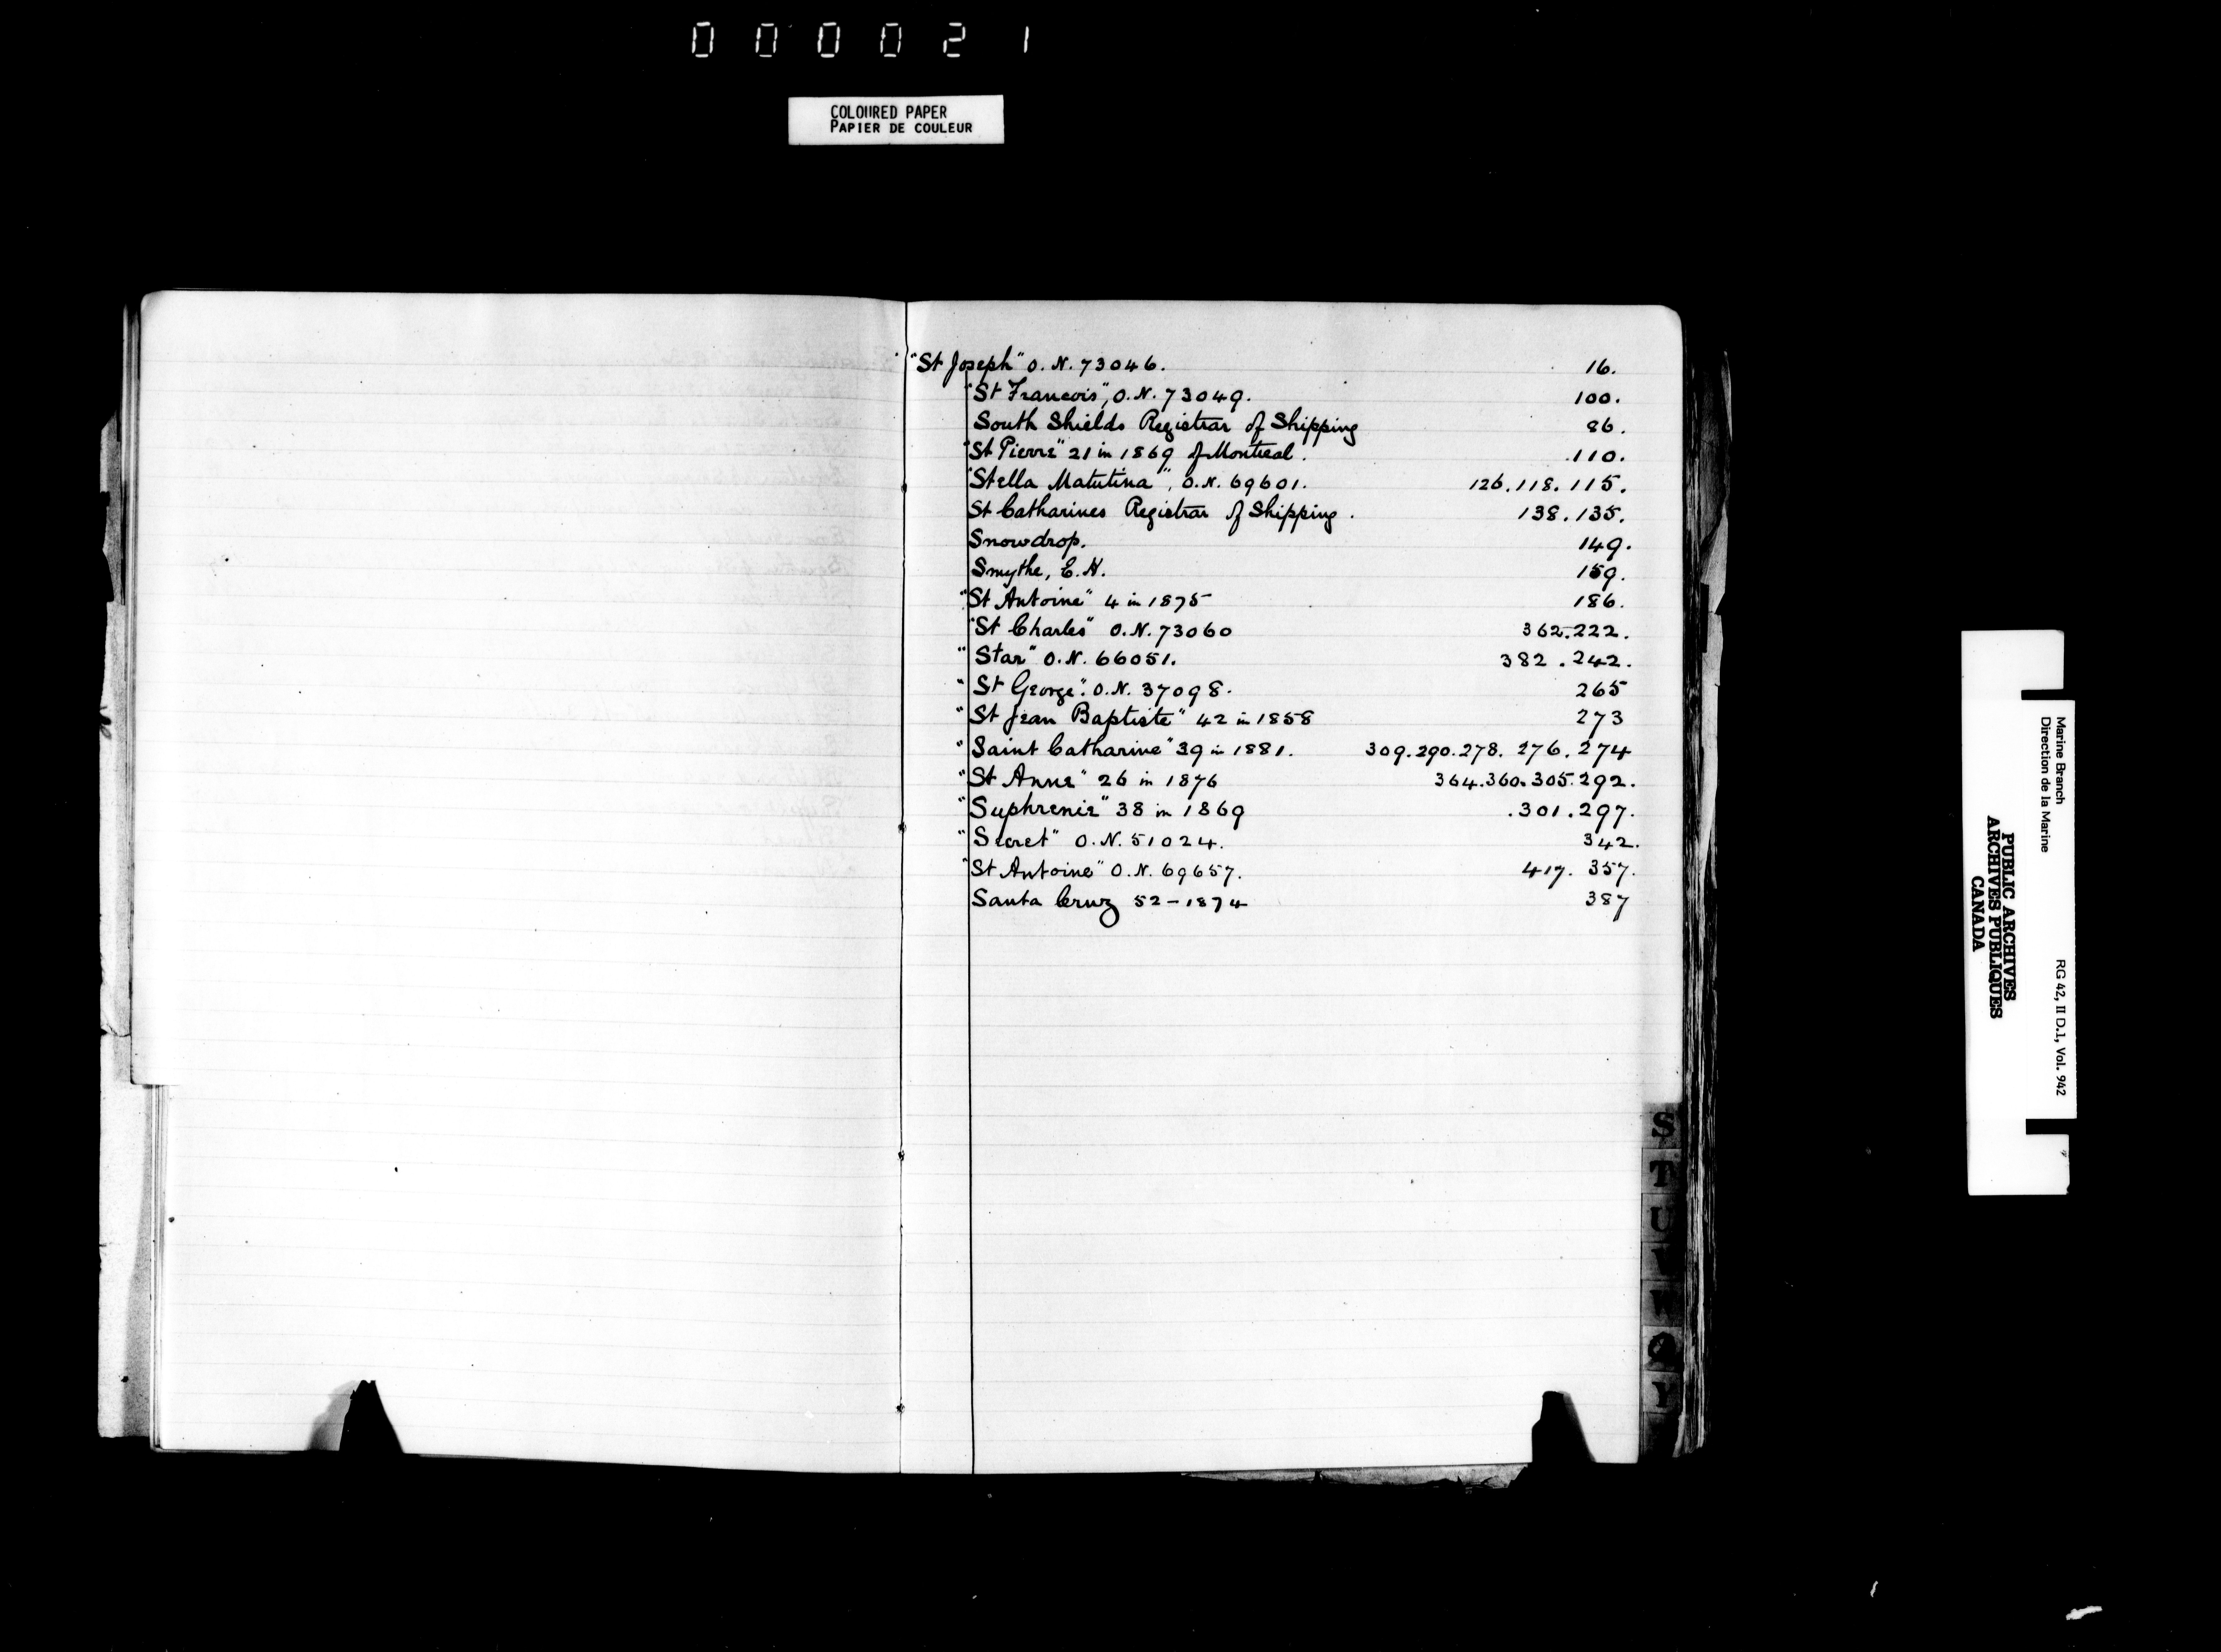 000021
COLOURED PAPER
PAPIER DE COULEUR
"St Joseph" O.N. 73046. 16.
"St Francois", O.N. 73049. 100.
South Shields Registrar of Shipping 86.
"St Pierre" 21 in 1869 of Montreal. 110.
"Stella Matutina", O.N. 69601. 126.118.115.
St Catharines Registrar of Shipping. 138.135.
Snowdrop. 149.
Smythe, E.H. 159.
"St Antoine" 4 in 1875 186.
"St Charles" O.N. 73060 362.222.
"Star" O.N. 66051. 382.242.
"St George". O.N. 37098. 265
"St Jean Baptiste" 42 in 1858 273
"Saint Catharine" 39 in 1881. 309.290.278.276.274
"St Anne" 26 in 1876 364.360.305.292.
"Suphrenie" 38 in 1869 .301.297.
"Secret" O.N. 51024. 342.
"St Antoine" O.N. 69657. 417. 357.
Santa Cruz 52-1874 387
S
T
U
Y
Marine Branch
Direction de la Marine
RG 42, II D.1, Vol. 942
PUBLIC ARCHIVES
ARCHIVES PUBLIQUES
CANADA